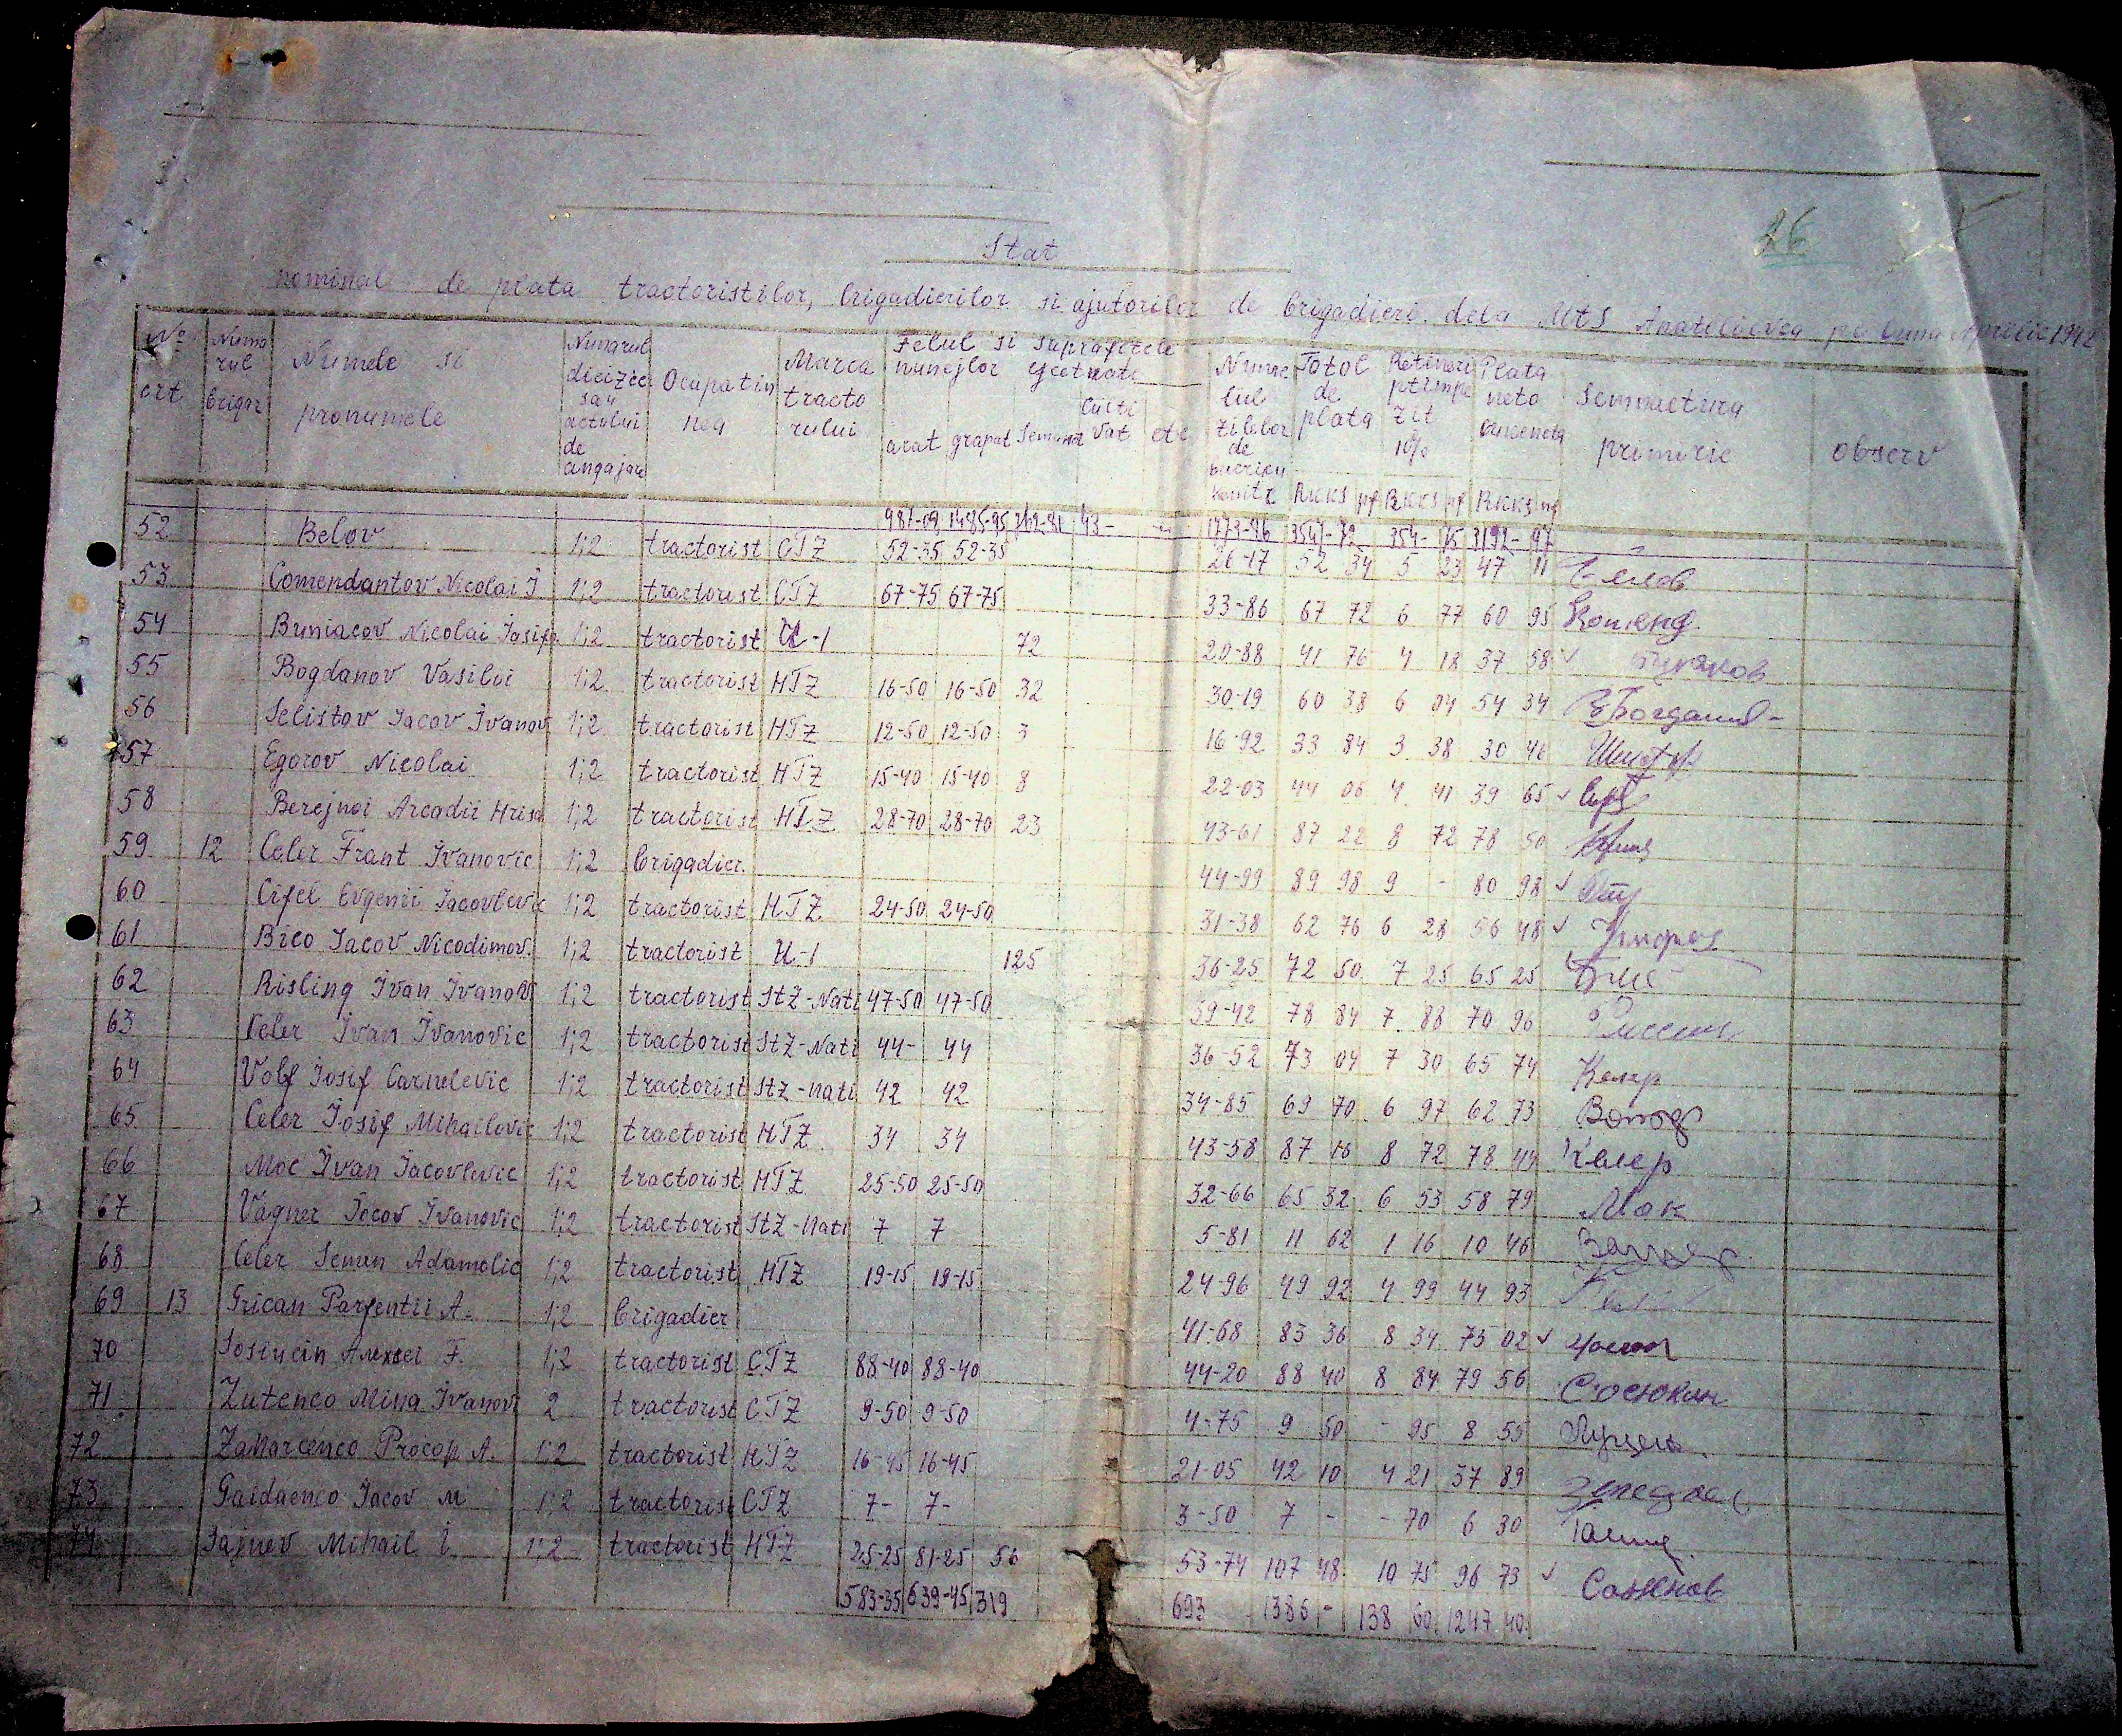 26
Stat
nominal de plata tractoristilor, brigadierilor si ajutorilor de brigadieri dela MTS pe luna Aprilie 1942
No crt Numa rul brigaz Numele si pronumele Numarul deciziei sau actului de angajare Ocupatiu nea Marca tracto rului Felul si suprafetele arat grapat Semanat Culti vat etc Totol de plata Retineri 10% Plata neto Semnactura primirie observ
RKKS pf RKKS pf RKKS
987-09 1485-95 43- 1773-96 354- 3192-
52 Belov 1;2 tractorist CTZ 52-35 52-35 26-17 52 34 5 23 47 11 Белов
53 Comendantov Nicolai I 1;2 tractorist CTZ 67-75 67-75 33-86 67 72 6 77 60 95 Коменд.
54 Buniacov Nicolai Iosifo 1;2 tractorist U-1 72 20-88 41 76 4 18 37 58 Буняков
55 Bogdanov Vasilii 1;2 tractorist HTZ 16-50 16-50 32 30-19 60 38 6 04 54 34
56 Selistov Iacov Ivanov 1;2 tractorist HTZ 12-50 12-50 3 16-92 33 84 3 38 30 46
57 Egorov Nicolai 1;2 tractorist HTZ 15-40 15-40 8 22-03 44 06 4 41 39 65
58 Berejnoi Arcadii Hrisa 1;2 tractorist HTZ 28-70 28-70 23 43-61 87 22 8 72 78 50
59 12 Celer Frant Ivanovic 1;2 brigadier 44-99 89 98 9 - 80 98
60 Cifel Evgenii Iacovlevic 1;2 tractorist HTZ 24-50 24-50 31-38 62 76 6 28 56 48
61 Bico Iacov Nicodimov. 1;2 tractorist U-1 125 36-25 72 50 7 25 65 25
62 Risling Ivan Ivanov 1;2 tractorist StZ-Nati 47-50 47-50 39-42 78 84 7 88 70 96
63 Celer Ivan Ivanovic 1;2 tractorist StZ-Nati 44- 44 36-52 73 04 7 30 65 74 Келер
64 Volf Iosif Carnelevic 1;2 tractorist StZ-Nati 42 42 34-85 69 70 6 97 62 73
65 Celer Iosif Mihailovic 1;2 tractorist HTZ 34 34 43-58 87 16 8 72 78 44 Келер
66 Moc Ivan Iacovlevic 1;2 tractorist HTZ 25-50 25-50 32-66 65 32 6 53 58 79 Мок
67 Vagner Iocov Ivanovic 1;2 tractorist StZ-Nati 7 7 5-81 11 62 1 16 10 46
68 Celer Semen Adamolic 1;2 tractorist HTZ 19-15 19-15 24-96 49 92 4 99 44 93
69 13 Grican Parfentii A. 1;2 brigadier 41-68 83 36 8 34 75 02
70 Sosiucin Alexei F. 1;2 tractorist CTZ 88-40 88-40 44-20 88 40 8 84 79 56 Сосюкин
71 Zutenco Mina Ivanovi 2 tractorist CTZ 9-50 9-50 4-75 9 50 - 95 8 55
72 Zamarcenco Procop A. 1;2 tractorist HTZ 16-45 16-45 21-05 42 10 4 21 37 89
73 Gaidaenco Iacov M 1;2 tractorist CTZ 7- 7- 3-50 7 - - 70 6 30
74 Sajnev Mihail I 1;2 tractorist HTZ 25-25 81-25 56 53-74 107 48 10 75 96 73 Сажнев
583-35 639-45 319 693 1386 - 138 60 1247 40